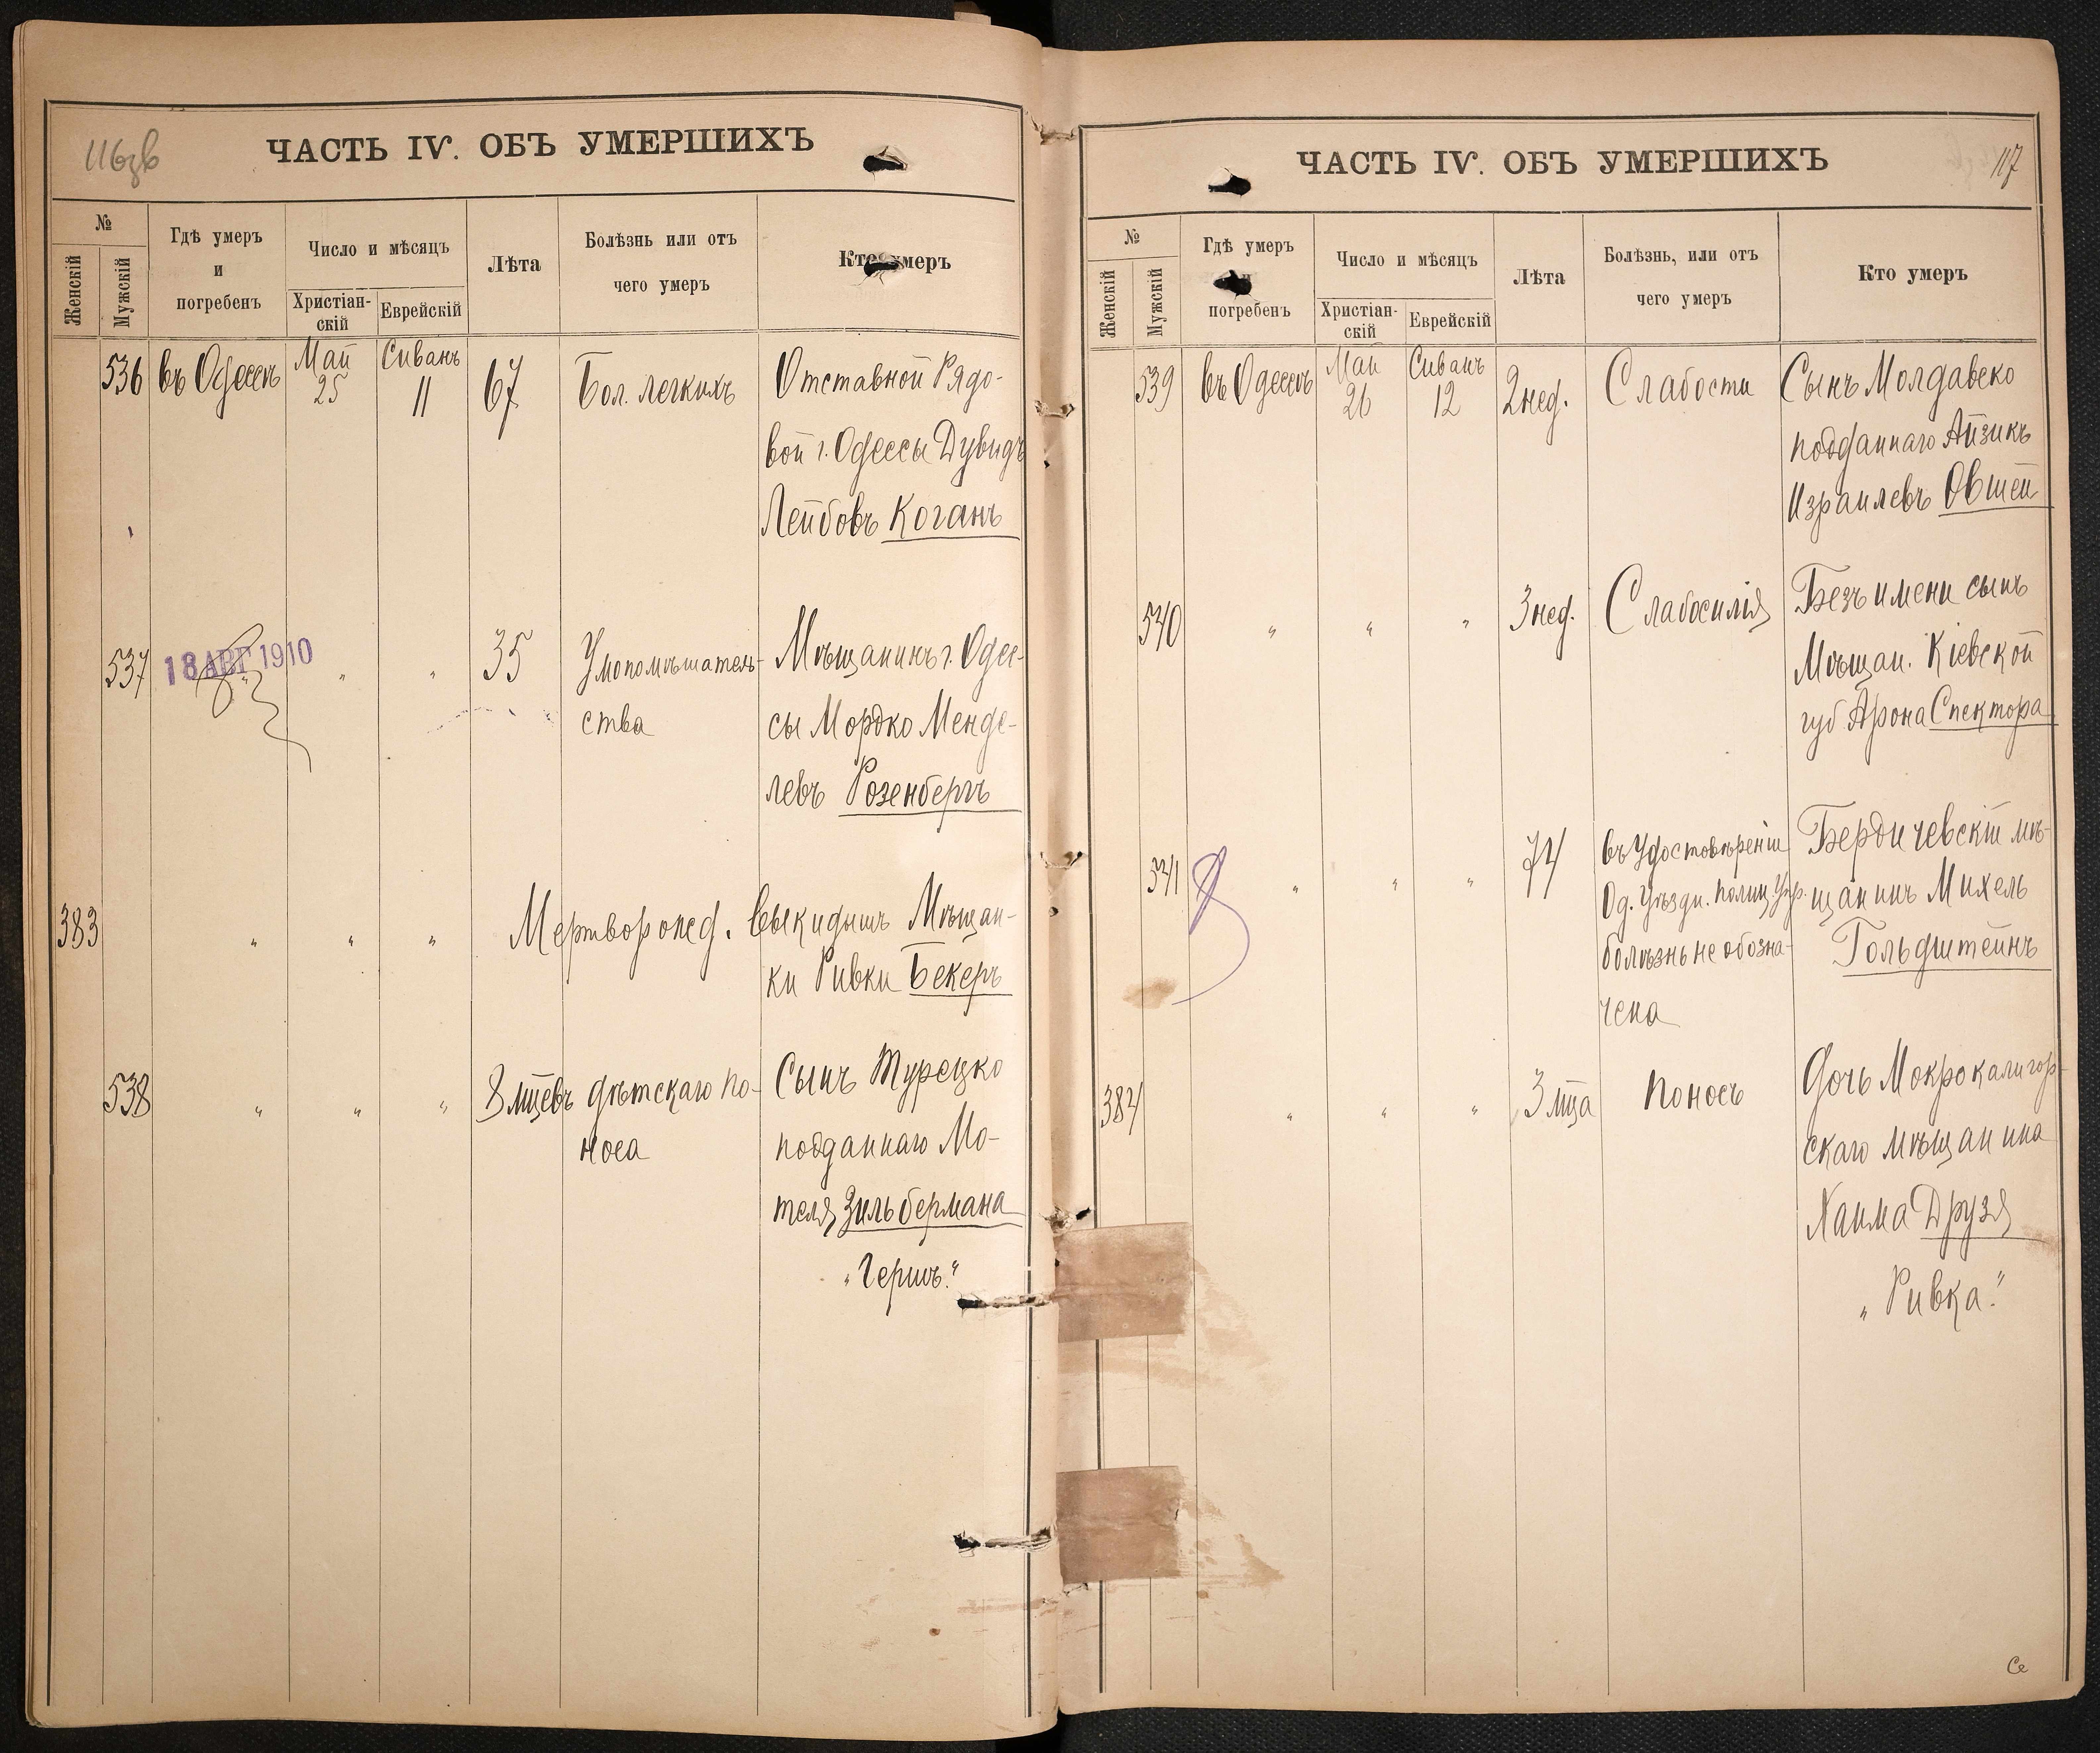 116зв
ЧАСТЬ IV. ОБЪ УМЕРШИХЪ
№
Женскій
Мужскій
Гдѣ умеръ
и
погребенъ
Число и мѣсяцъ
Христіан-
скій
Еврейскій
Лѣта
Болѣзнь или отъ
чего умеръ
Кто умеръ
536 въ Одессѣ Май 25 Сиванъ 11 67 Бол. легкихъ Отставной Рядо-
вой г. Одессы Дувидъ
Лейбовъ Коганъ
537 18 АВГ 1910 " " 35 Умопомѣшатель- Мѣщанинъ г. Одес-
ства сы Мордко Менде-
левъ Розенбергъ
383 " " " Мертворожд. выкидышъ Мѣщан-
ки Ривки Бекеръ
538 " " " 8 мцевъ дѣтскаго по- Сынъ Турецко
носа подданнаго Мо-
теля Зильбермана
"Гершъ."
ЧАСТЬ IV. ОБЪ УМЕРШИХЪ
117
№
Женскій
Мужскій
Гдѣ умеръ
и
погребенъ
Число и мѣсяцъ
Христіан-
скій
Еврейскій
Лѣта
Болѣзнь, или отъ
чего умеръ
Кто умеръ
539 въ Одессѣ Май 26 Сиванъ 12 2 нед. Слабости Сынъ Молдавско
подданнаго Айзикъ
Израилевъ Овшей
540 " " " 3 нед. Слабосилія Безъ имени сынъ
Мѣщан. Кіевской
губ. Арона Спектора
541 " " " 74 въ Удостовѣреніи Бердичевскій мѣ-
Од. Уѣздн. Полиц. Упр. щанинъ Михель
болѣзнь не обозна- Гольдштейнъ
чена
384 " " " 3 мца Поносъ Дочь Мокрокалигор-
скаго мѣщанина
Хаима Друзя
"Ривка."